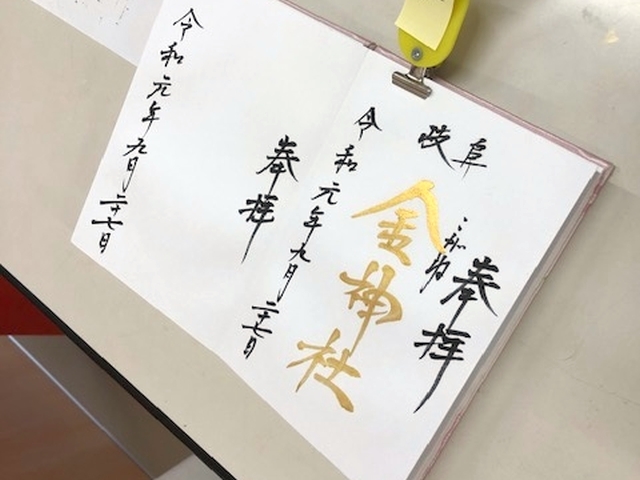 奉拝
岐阜
こがね
金神社
令和元年九月二十七日
奉拝
令和元年九月二十七日